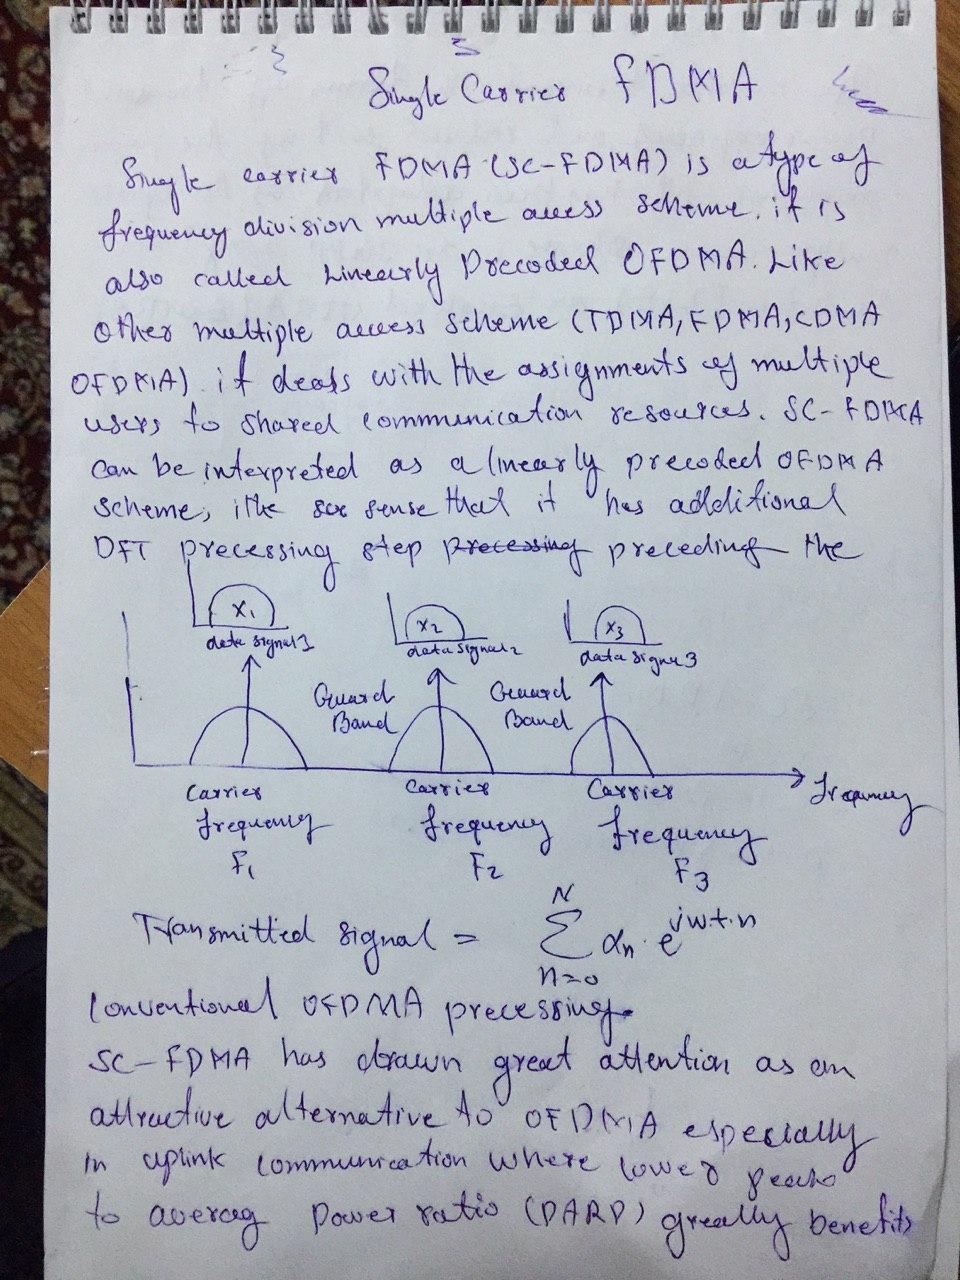 Single Carrier FDMA
Single carrier FDMA (SC-FDMA) is a type of
frequency division multiple access scheme. it is
also called Linearly Precoded OFDMA. Like
other multiple access scheme (TDMA, FDMA, CDMA
OFDMA). it deals with the assignments of multiple
users to shared communication resources. SC-FDMA
can be interpreted as a linearly precoded OFDMA
scheme, sense that it has additional
DFT precessing step precessing preceding the
X1 X2 X3
data signal 1 data signal 2 data signal 3
Guard Band Guard Band
Carrier frequency F1 Carrier frequency F2 Carrier frequency F3 frequency
Transmitted signal = N Σ n=0 αn . e^jwt.n
Conventional OFDMA precessing.
SC-FDMA has drawn great attention as an
attractive alternative to OFDMA especially
in uplink communication where lower
to averag power ratio (PARP) greally benefits